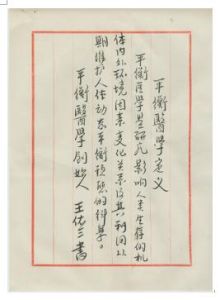 平衡醫学定义
平衡医学是研究影响人类生存的机
体内外环境因素变化关系及其利用以
期维护人体动态平衡稳态的科學。
平衡醫學创始人 王佑三書